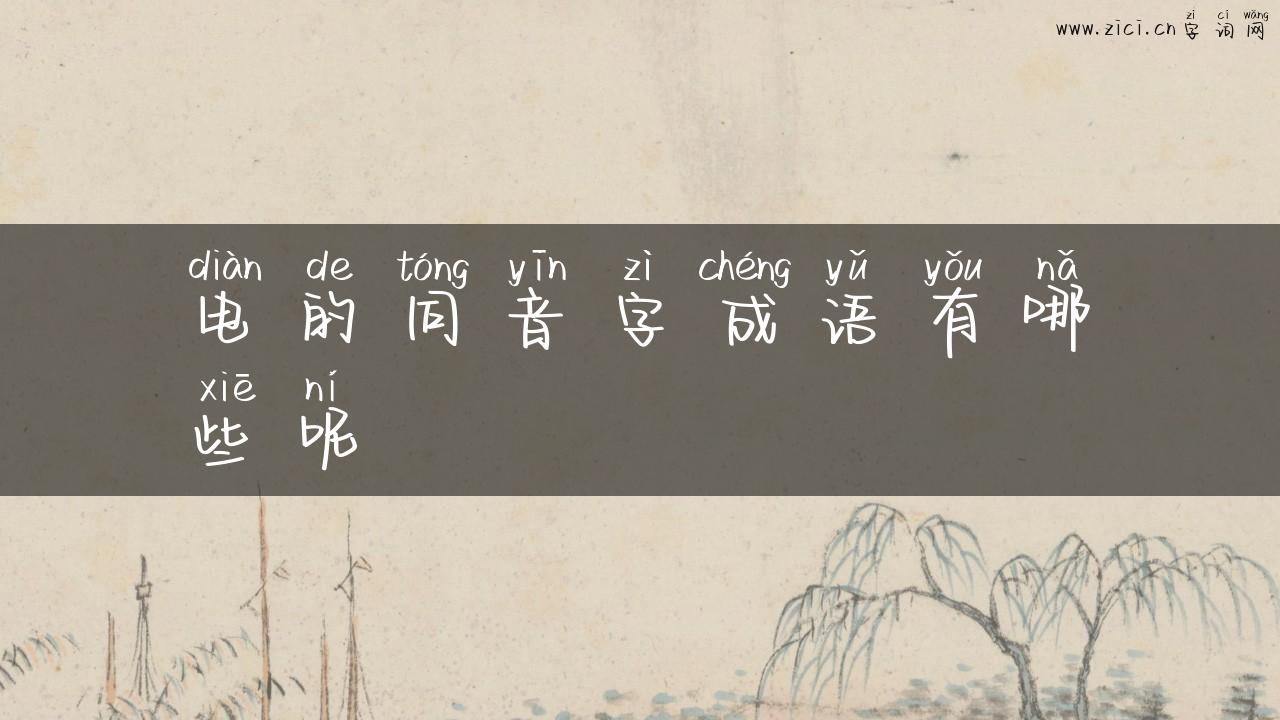 zì cí wǎng
www.zici.cn 字词网
diàn de tóng yīn zì chéng yǔ yǒu nǎ
电的同音字成语有哪
xiē ní
些呢